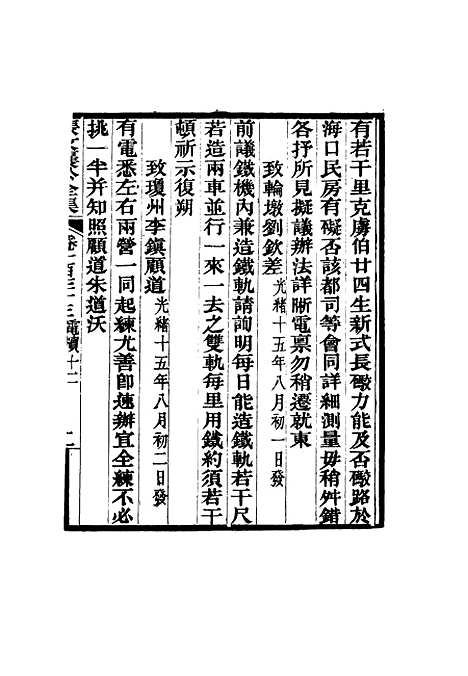 有若干里克虜伯廿四生新式長礮力能及否礮路於
海口民房有礙否該都司等會同詳細測量毋稍舛錯
各抒所見擬議辦法詳晰電禀勿稍遷就東
致輪墩劉欽差光緒十五年八月初一日發
前議鐵機內兼造鐵軌請詢明每日能造鐵軌若干尺
若造兩車並行一來一去之雙軌每里用鐵約須若干
頓祈示復朔
致瓊州李鎮顧道光緒十五年八月初二日發
有電悉左右兩營一同起練尤善卽速辦宜全練不必
挑一半并知照顧道朱道沃
張文襄公全集 卷一百三十三 電牘十二